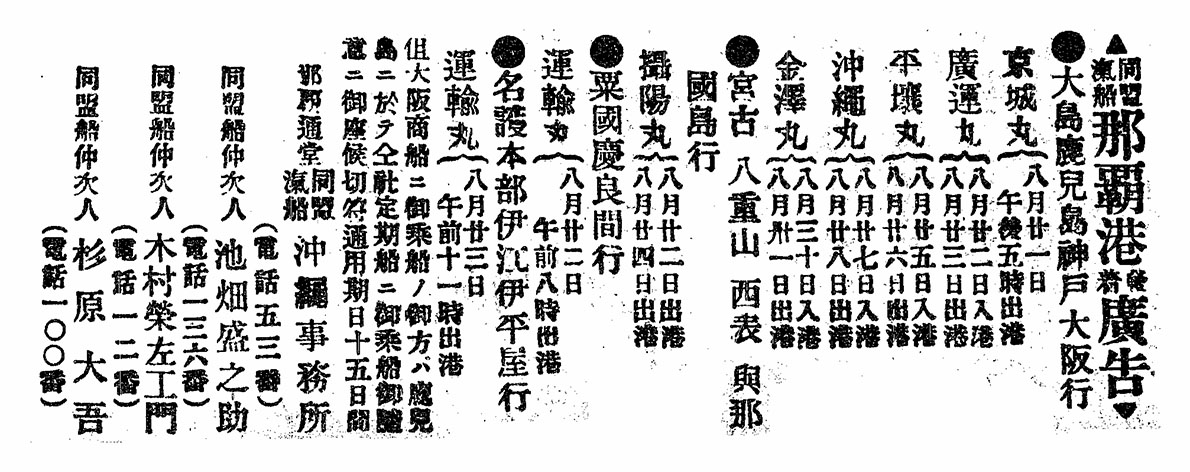 ▲同盟汽船那覇港発着廣告▼
●大島鹿兒島神戸大阪行
京城丸 八月廿一日午後五時出港
廣運丸 八月廿二日入港 八月廿三日出港
平壤丸 八月廿五日入港 八月廿六日出港
沖繩丸 八月廿七日入港 八月廿八日出港
金澤丸 八月三十日入港 八月卅一日出港
●宮古 八重山 西表 與那
國島行
攝陽丸 八月廿二日出港 八月廿四日出港
●粟國慶良間行
運輸丸 八月廿二日午前八時出港
●名護本部伊江伊平屋行
運輸丸 八月廿三日午前十一時出港
但大阪商船ニ御乘船ノ御方ハ鹿兒
島ニ於テ仝社定期船ニ御乘船御隨
意ニ御座候切符通用期日十五日間
那覇通堂 同盟汽船 沖繩事務所
(電話五三番)
同盟船仲次人 池畑盛之助
(電話一三六番)
同盟船仲次人 木村榮左工門
(電話一二番)
同盟船仲次人 杉原大吾
(電話一〇〇番)